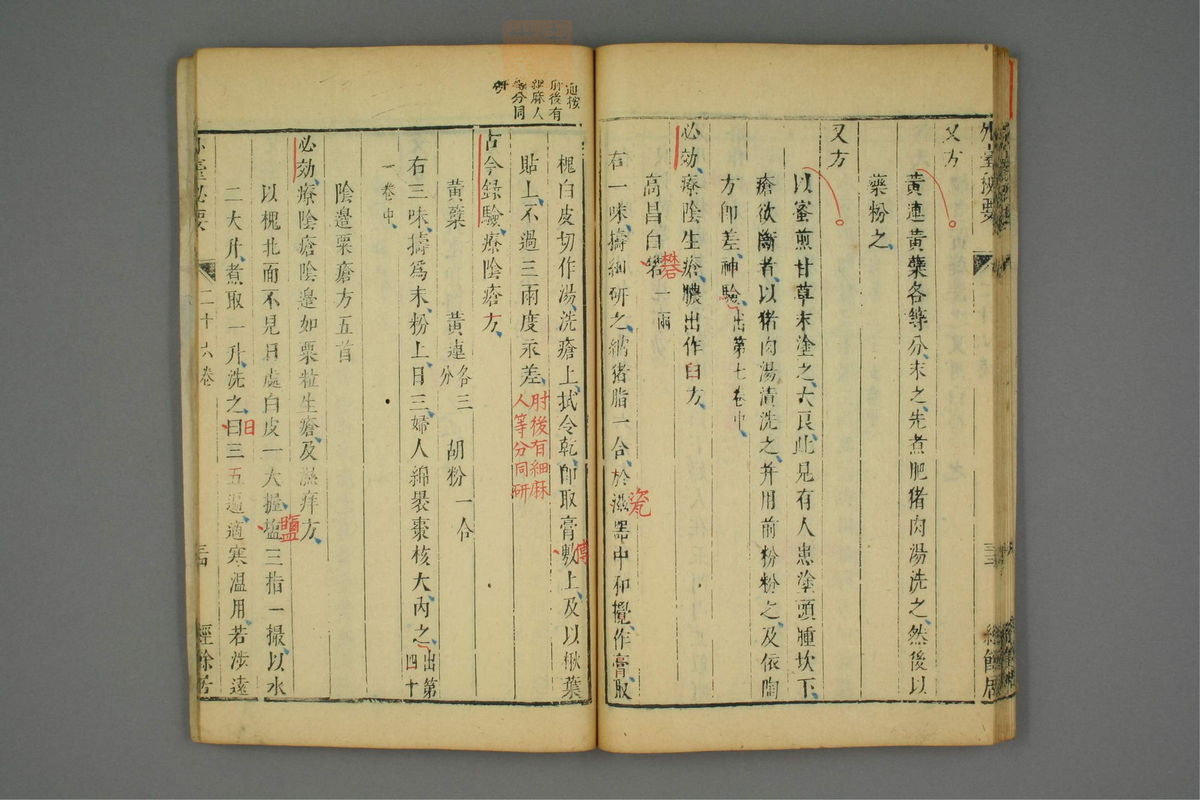 外臺秘要
又方
黃連黃蘗各等分末之先煮肥猪肉湯洗之然後以
藥粉之
又方
以蜜煎甘草末塗之大良此見有人患塗頭腫坎下
瘡欲斷者以猪肉湯漬洗之并用前粉粉之及依陶
方卽差神驗出第七卷中
必効療陰生瘡膿出作臼方
高昌白礬一兩
礬
右一味擣細研之練猪脂一合於滋器中和攪作膏取
瓷
槐白皮切作湯洗瘡上拭令乾卽取膏敷上及以楸葉
傅
貼上不過三兩度永差
肘後有細麻
人等分同研
古今錄驗療陰瘡方
黃蘗 黃連各三分 胡粉一合
右三味擣爲末粉上日三婦人綿裹棗核大內之出第四十
一卷中
陰邊粟瘡方五首
必効療陰瘡陰邊如粟粒生瘡及濕痒方
以槐北面不見日處白皮一大握塩三指一撮以水
鹽
二大升煮取一升洗之曰三五遍適寒溫用若涉遠
日
外臺秘要
二十六卷
三四
經餘居
肘後有
細麻人
等分同
研